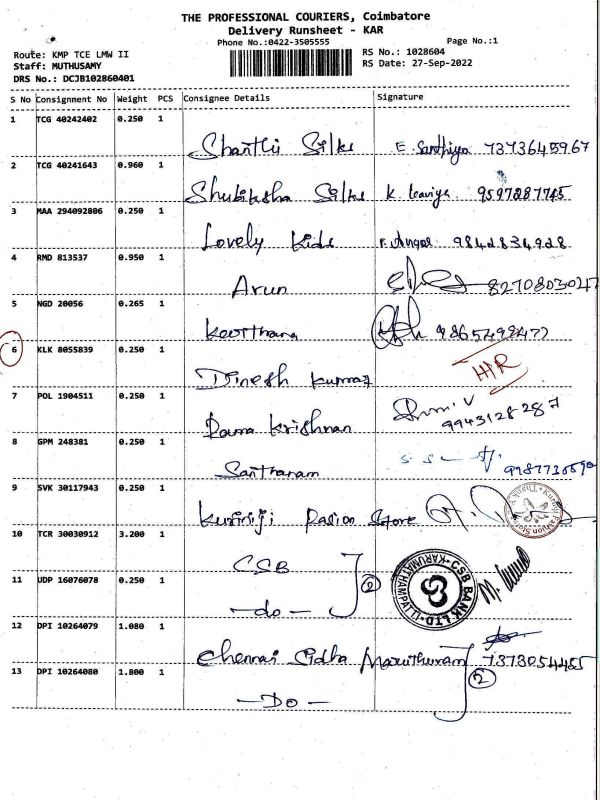 THE PROFESSIONAL COURIERS, Coimbatore
Delivery Runsheet - KAR
Phone No.:0422-3505555 Page No.:1
Route: KMP TCE LMW II RS No.: 1028604
Staff: MUTHUSAMY RS Date: 27-Sep-2022
DRS No.: DCJB102860401
S No Consignment No Weight PCS Consignee Details Signature
1 TCG 40242402 0.250 1
Shanthi Silks E. Santhiya 7373645967
2 TCG 40241643 0.960 1
Shubiksha Silks K. 9597287745
3 MAA 294092806 0.250 1
Lovely Kids 9842834928
4 RMD 813537 0.950 1
Arun 8270803047
5 NGD 20056 0.265 1
Keerthana 9865499477
6 KLK 8055839 0.250 1
Dinesh Kumar
7 POL 1904511 0.250 1
Rama Krishnan 9943128287
8 GPM 248381 0.250 1
Santharam
9 SVK 30117943 0.250 1
Kurinji Store
10 TCR 30030912 3.200 1
CSB 2
CSB BANK LTD KARUMATHAMPATTI
11 UDP 16076078 0.250 1
-do-
12 DPI 10264079 1.080 1
Chennai Sidha Maruthuvam 7373054455
13 DPI 10264080 1.800 1 2
-Do-